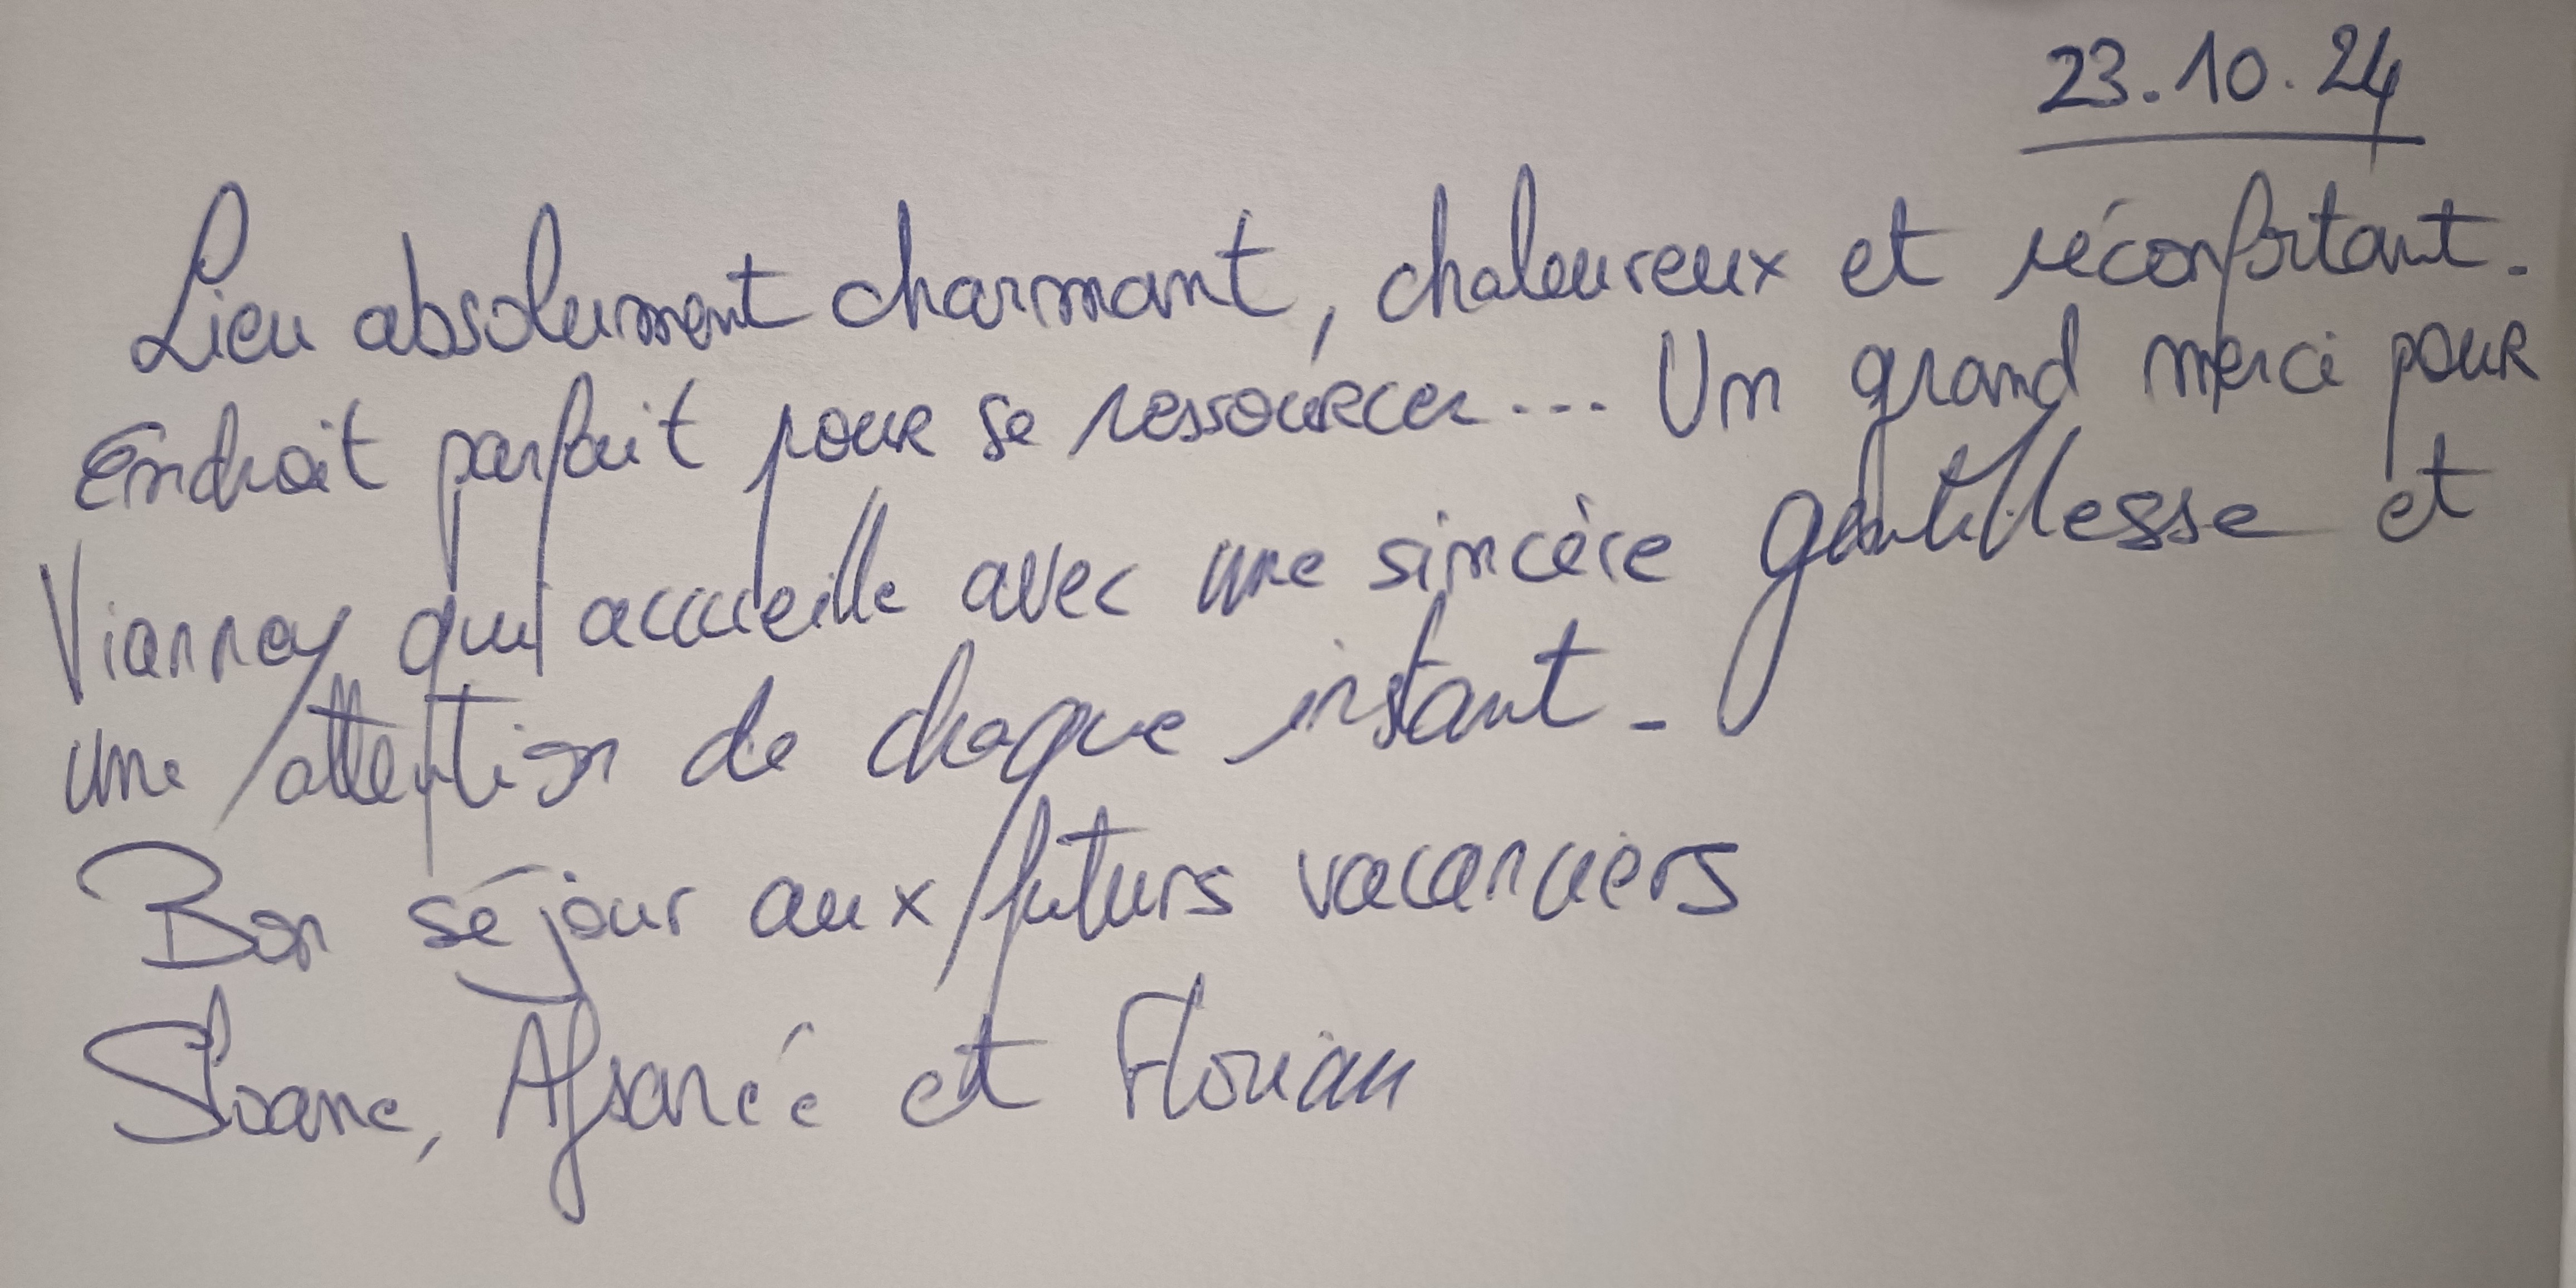 23.10.24
Lieu absolument charmant, chaleureux et réconfortant.
Endroit parfait pour se ressourcer... Un grand merci pour
Vianney qui accueille avec une sincère gentillesse et
une attention de chaque instant.
Bon séjour aux futurs vacanciers
Sloane, Afsanéé et Florian